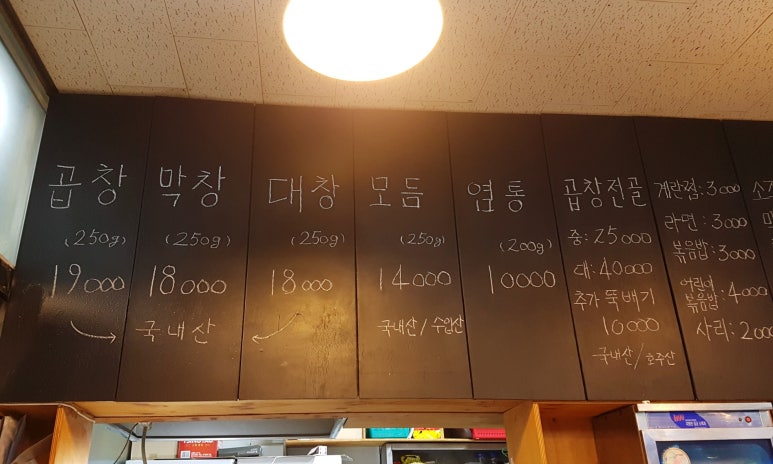 곱창
(250g)
19000
막창
(250g)
18000
국내산
대창
(250g)
18000
모듬
(250g)
14000
국내산/수입산
염통
(200g)
10000
곱창전골
중:25000
대:40000
추가 뚝배기
10000
국내산/호주산
계란찜:3000
라면:3000
볶음밥:3000
어린이
볶음밥:4000
사리:2000